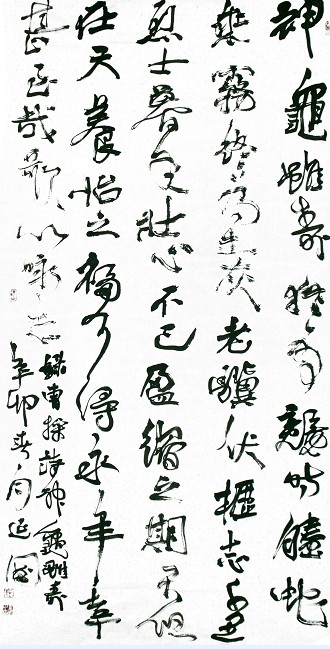 神龜雖壽猶有競时螣蛇
乘霧終為土灰老驥伏櫪志千里
烈士暮年壯心不已盈縮之期不但
在天養怡之福可得永年幸
甚至哉歌以詠志
錄曹操詩神龜雖壽
辛卯春月延國